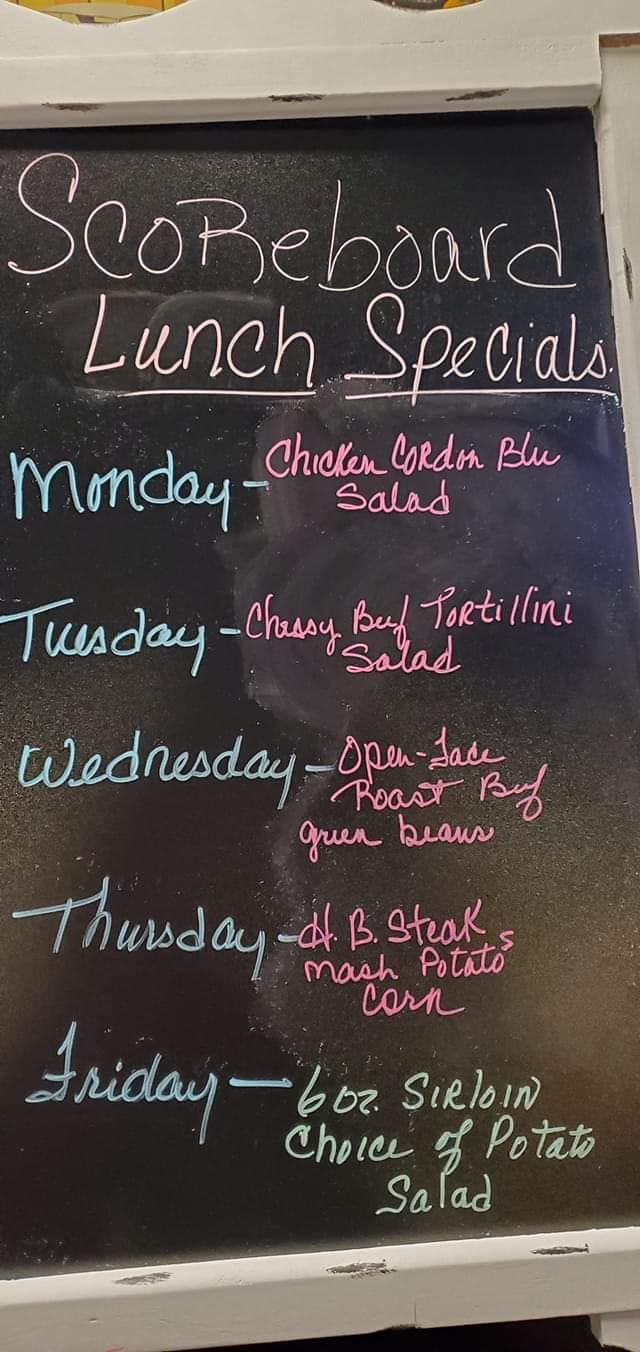 Scoreboard
Lunch Specials
Monday - Chicken Cordon Blu
Salad
Tuesday - Chessy Beef Tortillini
Salad
Wednesday - Open-Face
Roast Beef
green beans
Thursday - H.B. Steak
Mash Potatos
Corn
Friday - 6oz. Sirloin
Choice of Potato
Salad